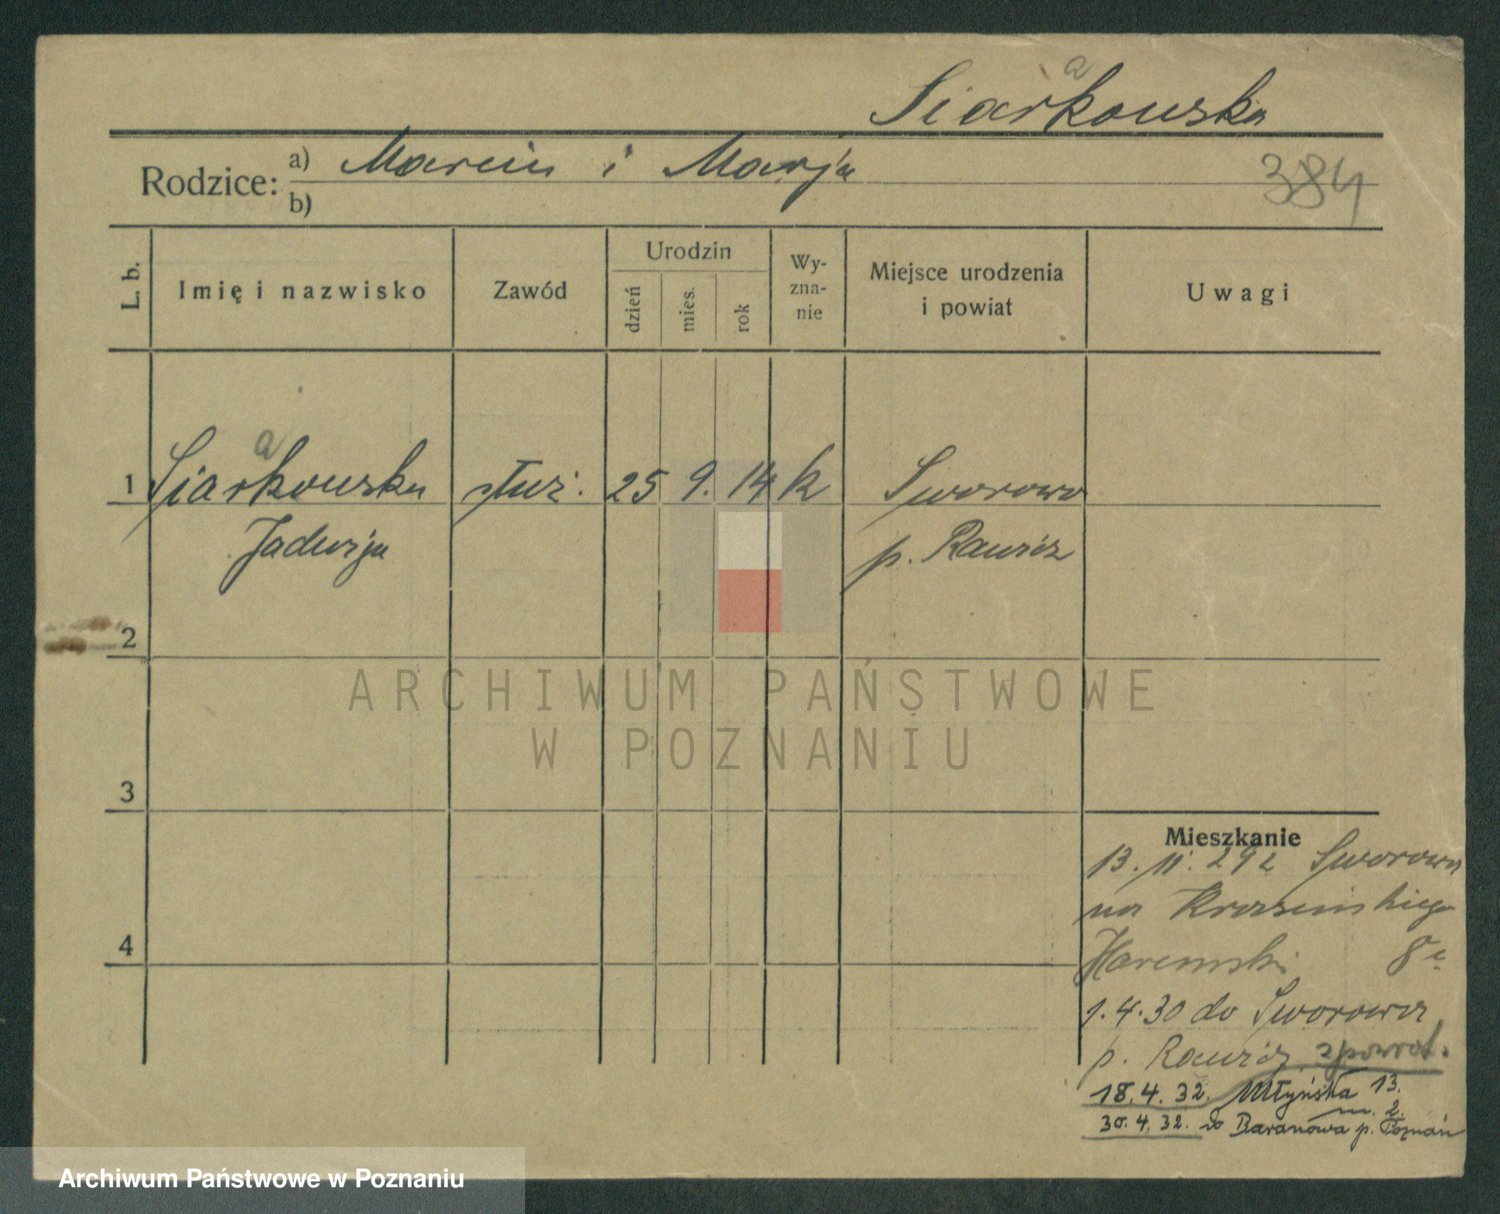 a
Siarkowska
Rodzice: a) Marcin i Marja
b)
384
L. b.
Imię i nazwisko
Zawód
Urodzin
dzień
mies.
rok
Wy-
zna-
nie
Miejsce urodzenia
i powiat
Uwagi
a
1 Siarkowska służ. 25 9. 14 k Sworowo
Jadwiga p. Rawicz
2
ARCHIWUM PAŃSTWOWE
W POZNANIU
3
4
Mieszkanie
13. 11. 29 z Sworowa
na Krasińskiego
8
1.4.30 do Sworowa
p. Rawicz zpowrot.
18.4.32. Młyńska 13.
m. 2.
30.4.32. do Baranowa p. Poznań
Archiwum Państwowe w Poznaniu